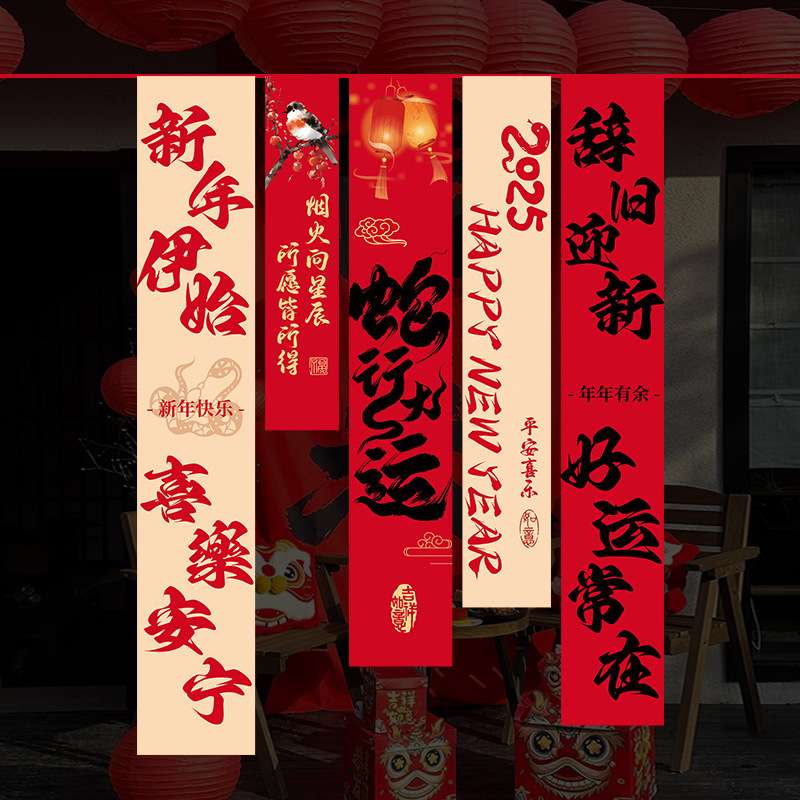 新年伊始
- 新年快乐 -
喜樂安宁
烟火向星辰
所愿皆所得
蛇行大运
吉祥如意
2025
HAPPY NEW YEAR
平安喜乐
如意
辞旧迎新
- 年年有余 -
好运常在